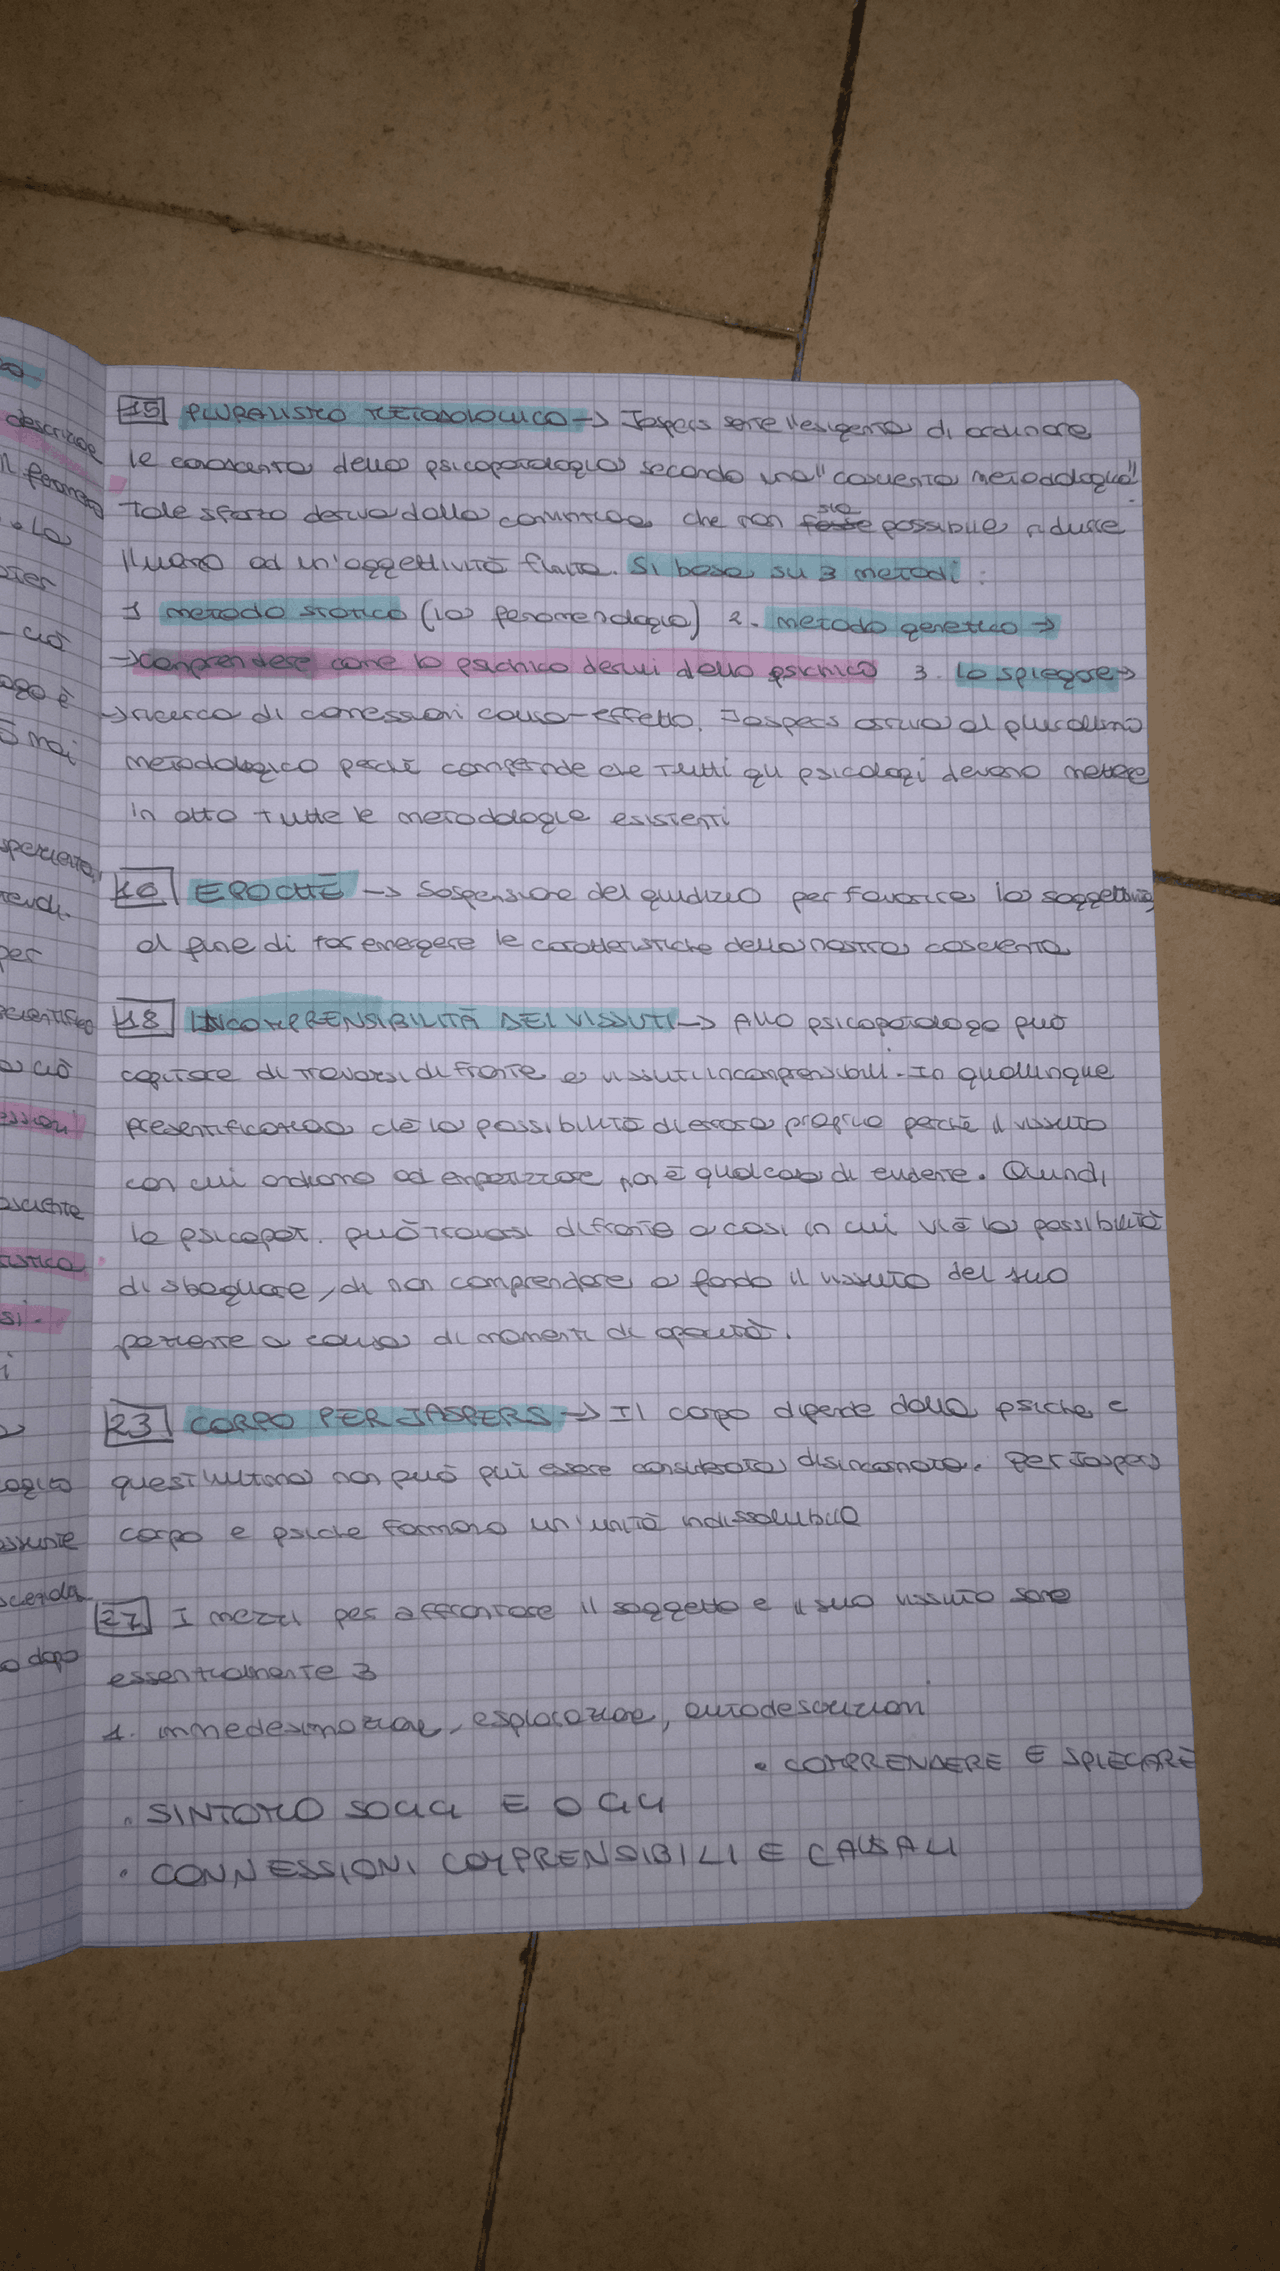 15 PLURALISMO METODOLOGICO → Jaspers sente l'esigenza di ordinare
le conoscenza della psicopatologia secondo una "coscienza metodologica".
Tale sforzo deriva dalla convinzione che non fosse sia possibile ridurre
l'uomo ad un'oggettività finita. Si basa su 3 metodi:
1 metodo statico (la fenomenologia) 2. metodo genetico →
→ comprendere come lo psichico derivi dallo psichico 3. lo spiegare →
→ ricerca di connessioni causa-effetto. Jaspers arriva al pluralismo
metodologico perché comprende che tutti gli psicologi devono mettere
in atto tutte le metodologie esistenti
16 EPOCHÈ → Sospensione del giudizio per favorire la soggettività
al fine di far emergere le caratteristiche della nostra coscienza
18 INCOMPRENSIBILITÀ DEI VISSUTI → Allo psicopatologo può
capitare di trovarsi di fronte a vissuti incomprensibili. In qualunque
presentificazione c'è la possibilità di errore proprio perché il vissuto
con cui andiamo ad empatizzare non è qualcosa di evidente. Quindi
lo psicopat. può trovarsi di fronte a casi in cui vi è la possibilità
di sbagliare, di non comprendere a fondo il vissuto del suo
paziente a causa di momenti di opacità.
23 CORPO PER JASPERS → Il corpo dipende dalla psiche e
quest'ultima non può più essere considerata disincarnata. Per Jaspers
corpo e psiche formano un'unità indissolubile
27 I mezzi per affrontare il soggetto e il suo vissuto sono
essenzialmente 3
1. immedesimazione, esplorazione, autodescrizioni
• COMPRENDERE E SPIEGARE
• SINTOMO SOGG E OGG
• CONNESSIONI COMPRENSIBILI E CAUSALI